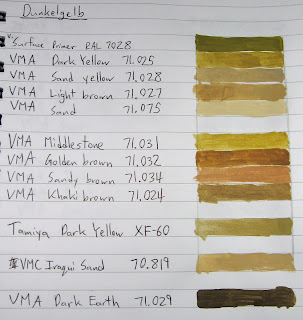 Dunkelgelb
V. Surface Primer RAL 7028
VMA Dark Yellow 71.025
VMA Sand yellow 71.028
VMA Light brown 71.027
VMA Sand 71.075
VMA Middlestone 71.031
VMA Golden brown 71.032
VMA Sandy brown 71.034
VMA Khaki brown 71.024
Tamiya Dark Yellow XF-60
VMC Iraqui Sand 70.819
VMA Dark Earth 71.029